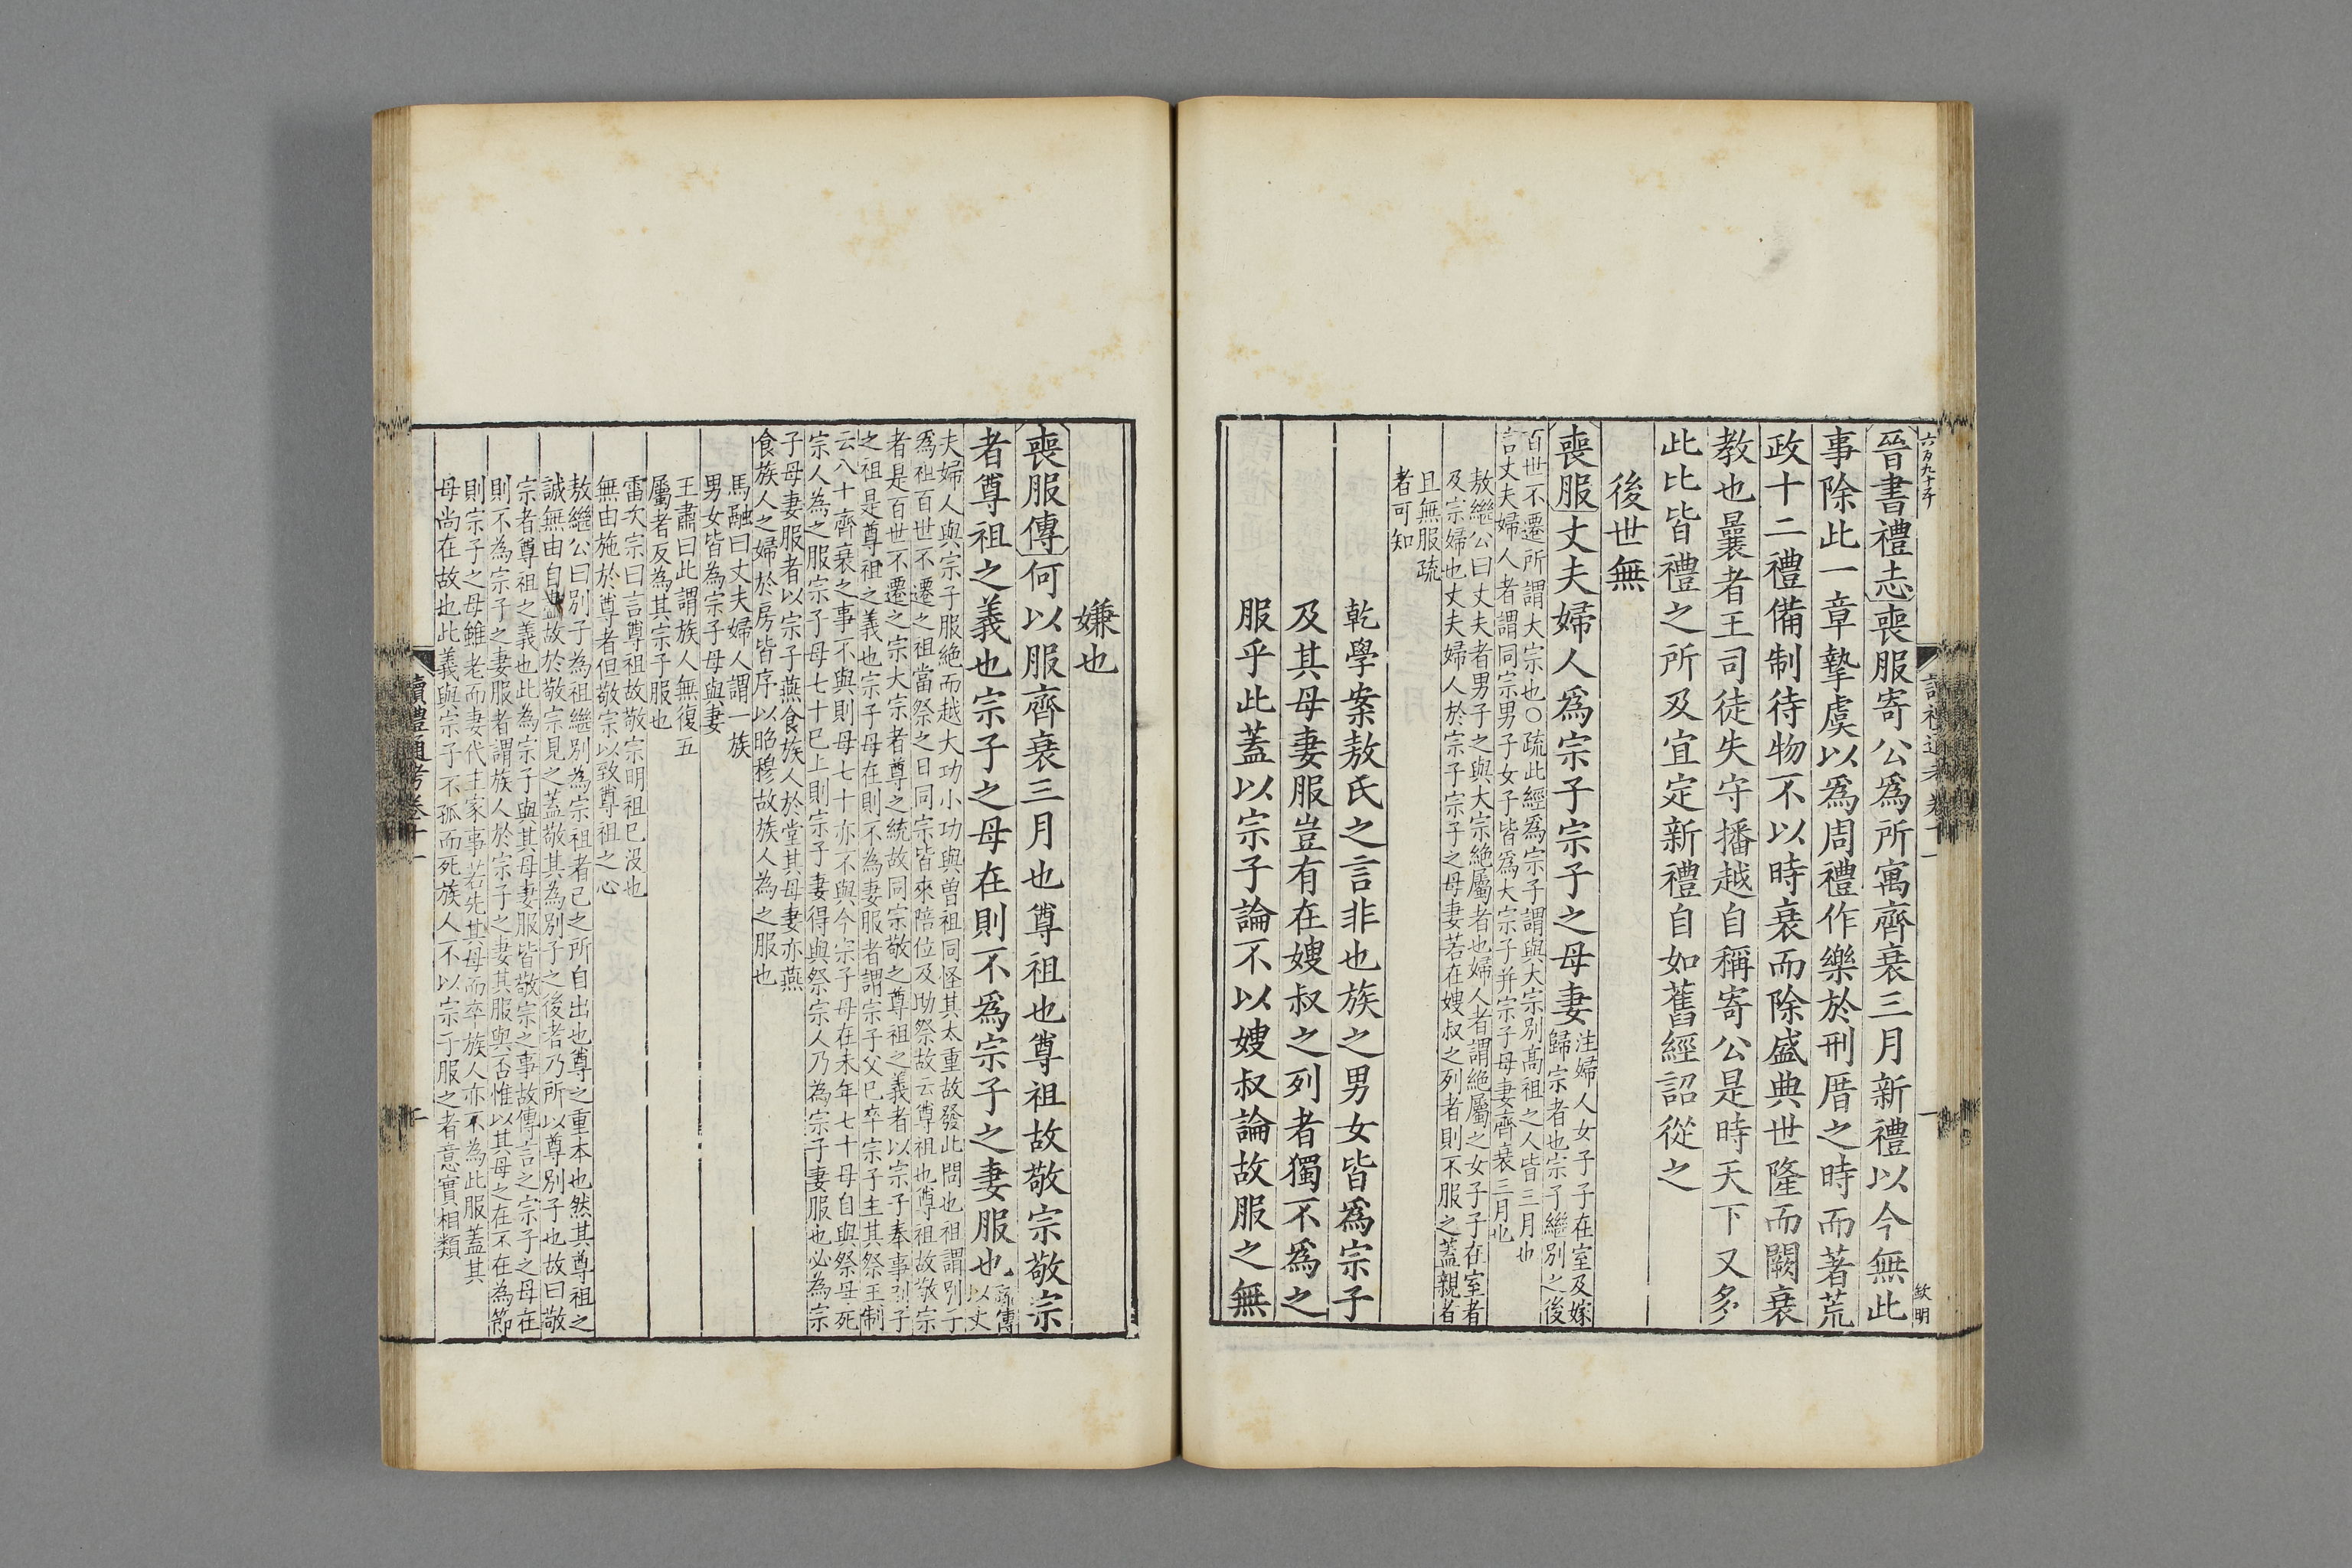 六百九十字
讀禮通考 卷十一
一
欽明
晉書禮志喪服寄公爲所寓齊衰三月新禮以今無此
事除此一章摯虞以爲周禮作樂於刑厝之時而著荒
政十二禮備制待物不以時衰而除盛典世隆而闕衰
教也曩者王司徒失守播越自稱寄公是時天下又多
此比皆禮之所及宜定新禮自如舊經詔從之
後世無
喪服丈夫婦人爲宗子宗子之母妻
注婦人女子子在室及嫁
歸宗者也宗子繼別之後
百世不遷所謂大宗也○疏此經爲宗子謂與大宗別高祖之人皆三月也
言丈夫婦人者謂同宗男子女子皆爲大宗子并宗子母妻齊衰三月也
敖繼公曰丈夫者男子之與大宗絶屬者也婦人者謂絶屬之女子子在室者
及宗婦也丈夫婦人於宗子宗子之母妻若在嫂叔之列者則不服之蓋親者
且無服疏
者可知
乾學案敖氏之言非也族之男女皆爲宗子
及其母妻服豈有在嫂叔之列者獨不爲之
服乎此蓋以宗子論不以嫂叔論故服之無
嫌也
喪服傳何以服齊衰三月也尊祖也尊祖故敬宗敬宗
者尊祖之義也宗子之母在則不爲宗子之妻服也
疏傳
以丈
夫婦人與宗子服絶而越大功小功與曾祖同怪其太重故發此問也祖謂別子
爲祖百世不遷之祖當祭之日同宗皆來陪位及助祭故云尊祖也尊祖故敬宗
者是百世不遷之宗大宗者尊之統故同宗敬之尊祖之義者以宗子奉事別子
之祖是尊祖之義也宗子母在則不為妻服者謂宗子父已卒宗子主其祭王制
云八十齊衰之事不與則母七十亦不與今宗子母在未年七十母自與祭母死
宗人為之服宗子母七十已上則宗子妻得與祭宗人乃為宗子妻服也必為宗
子母妻服者以宗子燕食族人於堂其母妻亦燕
食族人之婦於房皆序以昭穆故族人為之服也
馬融曰丈夫婦人謂一族
男女皆為宗子母與妻
王肅曰此謂族人無復五
屬者反為其宗子服也
雷次宗曰言尊祖故敬宗明祖已沒也
無由施於尊者但敬宗以致尊祖之心
敖繼公曰別子為祖繼別為宗祖者己之所自出也尊之重本也然其尊祖之
誠無由自盡故於敬宗見之蓋敬其為別子之後者乃所以尊別子也故曰敬
宗者尊祖之義也此為宗子與其母妻服皆敬宗之事故傳言之宗子之母在
則不為宗子之妻服者謂族人於宗子之妻其服與否惟以其母之在不在為節
則宗子之母雖老而妻代主家事若先其母而卒族人亦不為此服蓋其
母尚在故也此義與宗子不孤而死族人不以宗子服之者意實相類
讀禮通考卷十一
二